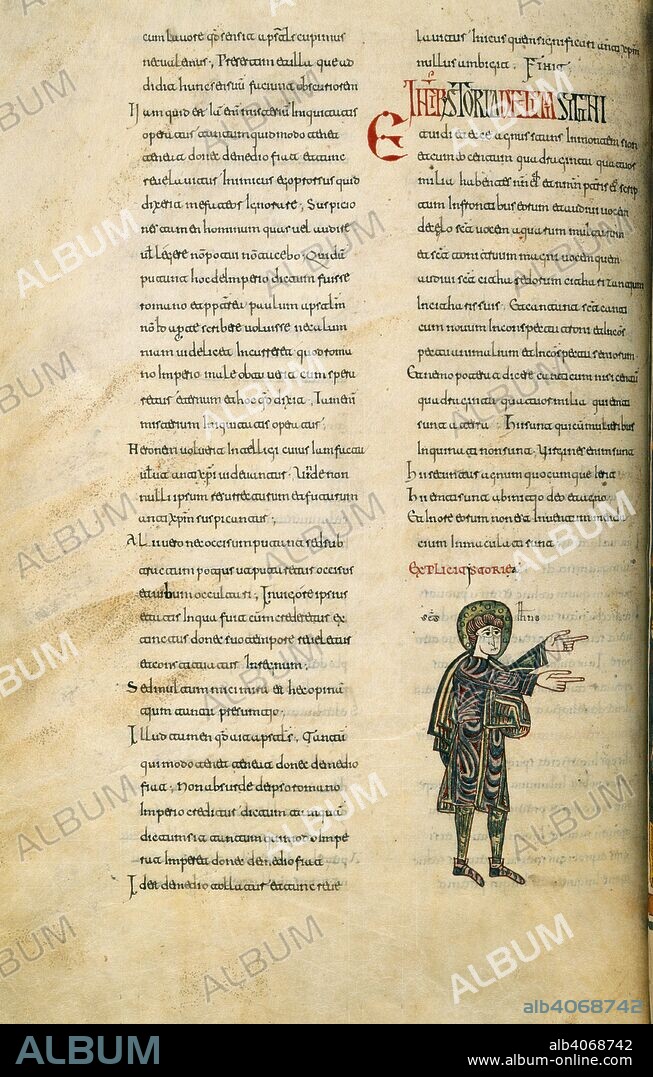 cum lauore qd sensit apstls cupimus
ne ualemus; Presertim et illa que ad
didit hunc sensum faciunt obscuriorem
Nam quid est Iam enim misterium Iniquitatis
operatur tantum qui modo tenet
teneat donec de medio fiat et tunc
reuelauitur Inimicus
dixerit me fateor Ignorare; Suspicio
nes tamen hominum quas uel audire
uel legere potui non tacebo; Quidam
putant hoc de Imperio dictum fuisse
romano et paulum apstlm
scribere uoluisse ne calum
niam uidelicet Incurreret quod roma
no Imperio male obtauerit cum spera
retur eternum et hoc qd dixit; Iam enim
misterium Iniquitatis operatur;
Neronem uoluerit Intelligi cuius Iam facta
uelut antixpi uidebantur; Unde non
nulli ipsum resurrecturum et futurum
antixpm suspicantur;
Alii uero nec occisum putant sed sub
tractum potius ut putaretur occisus
et uibum occultari; In uigore ipsius
etatis In qua fuit cum crederetur ex
tinctus donec suo tempore reueletur
et constituatur In regnum;
Sed multum mici mira est hec opinan
tium tanta presumtio;
Illud tamen qd ait apstls; Tantum
qui modo tenet teneat donec de medio
fiat; Non absurde de ipso romano
Imperio creditur dictum
dictum sit tantum qui modo Impe
rat Imperet donec de medio fiat
Id est de medio tollatur et tunc reue
lauitur Inicus quem significari antixpm
nullus ambigit; Finit
INCIPIT STORIA DE LEM SIGNI
Et uidi et ecce agnus stans In montem sion
et cum eo centum quadraginta quattuor
milia habentes nomen eius et nomen patris eius scrip
tum In frontibus eorum et audiui uocem
de celo sicut uocem aquarum multarum
et sicut tonitruum magni uocem quem
audiui sicut citharedorum citharizantium
In citharis suis; Et cantant sicut canti
cum nouum In conspectu troni et In cons
pectu animalium et In conspectu seniorum
Et nemo poterat dicere canticum nisi centum
quadraginta quattuor milia qui empti
sunt a terra; Hi sunt qui cum mulieribus
Inquinati non sunt; Uirgines enim sunt
Hi secuntur agnum quocumque Ierit
Hi empti sunt ab initio deo et agno
Et In ore eorum non est Inuentum menda
cium Inmaculati sunt
EXPLICIT STORIE
scs Ihns
ALBUM
alb4068742
ALBUM
alb4068742
www.album-online.com